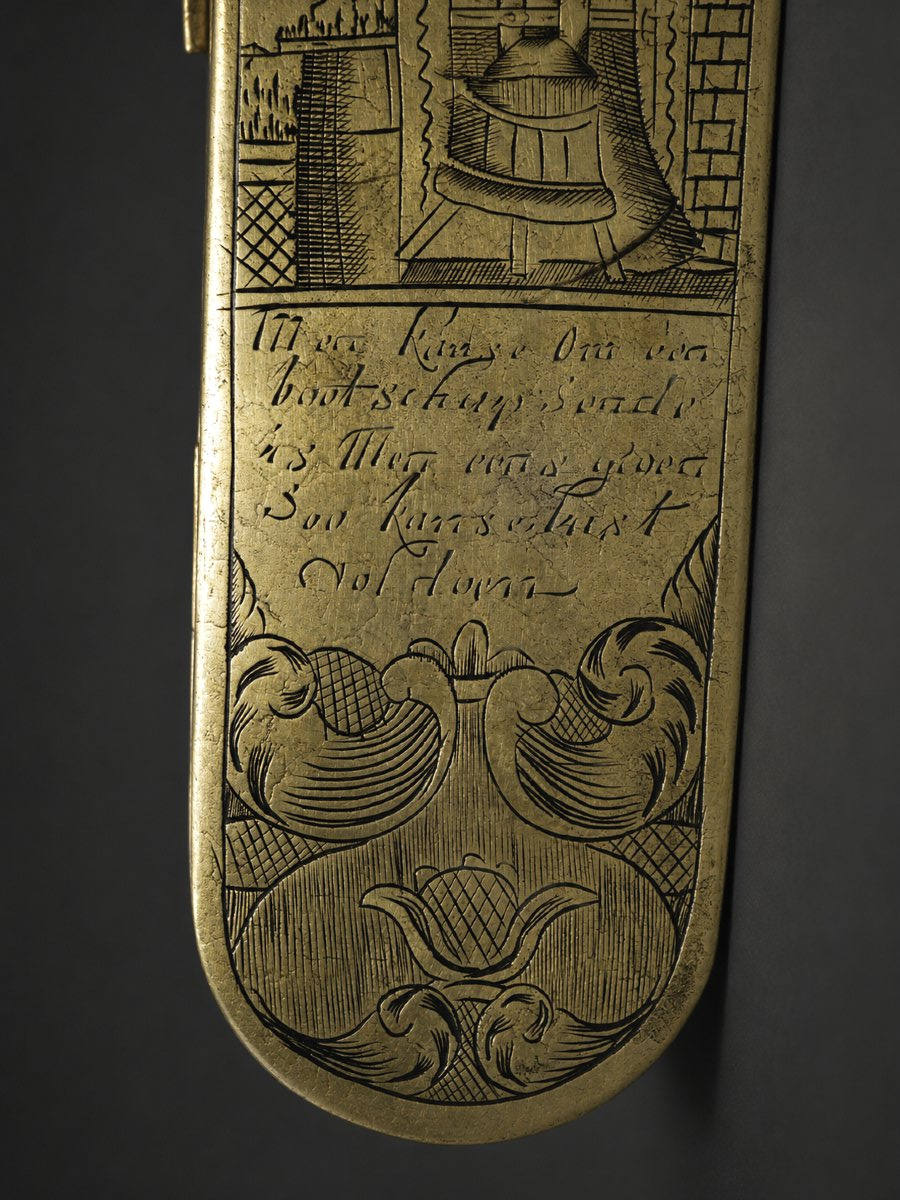 Men kan se om een
bootschap sende
As Men eens groen
Soo kan se lust
Voldoen